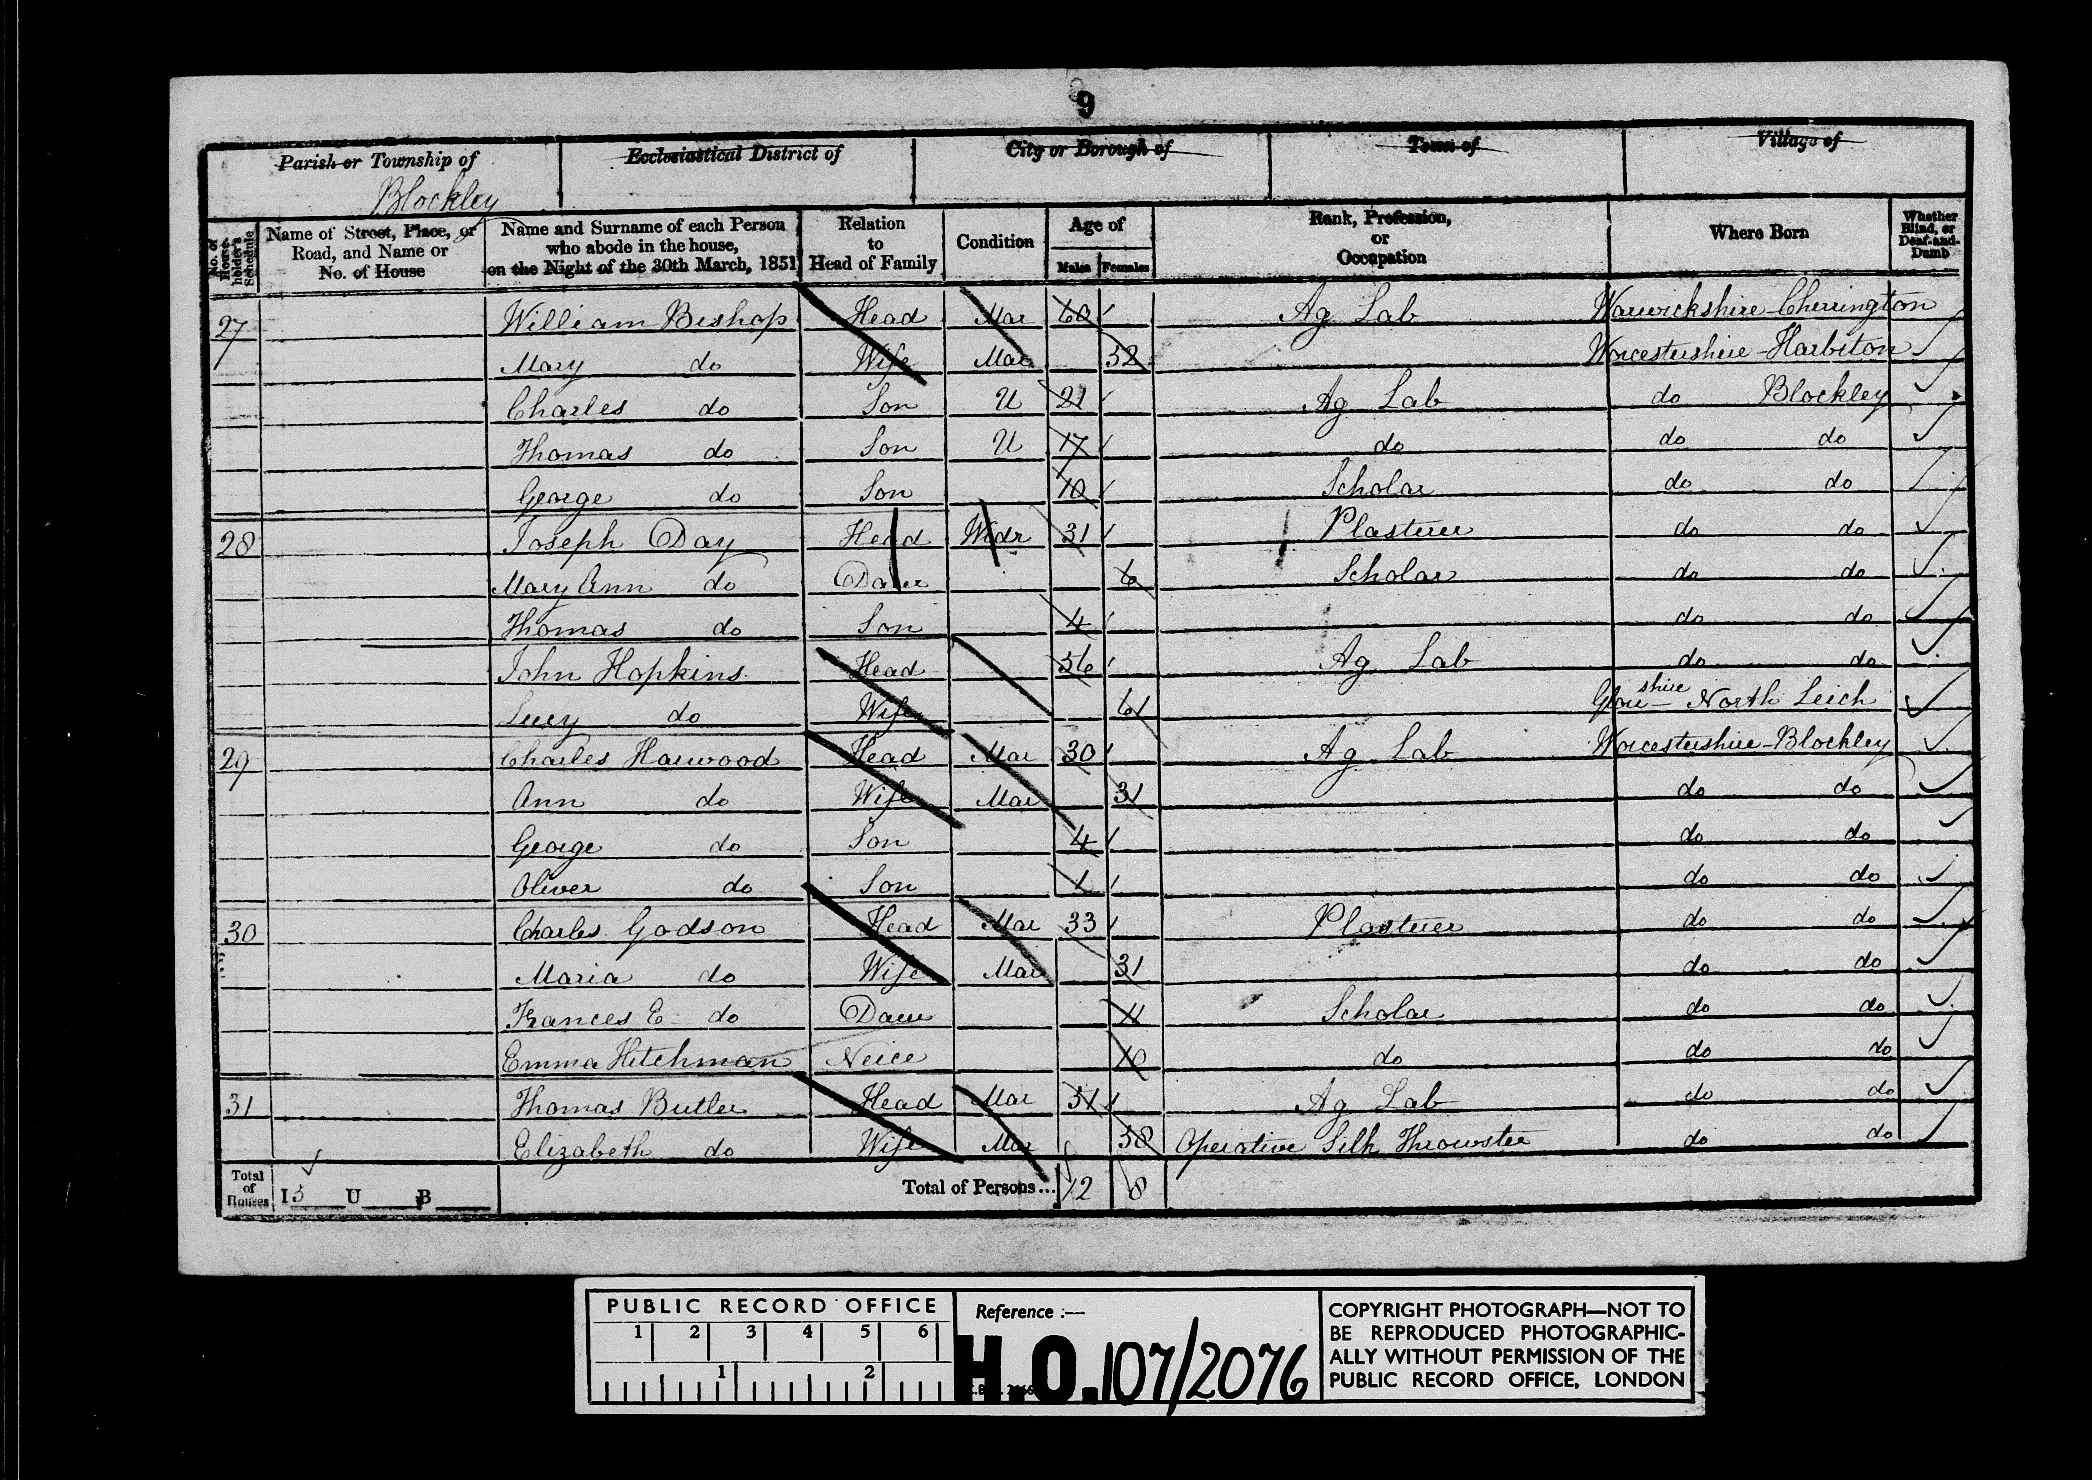 9
Parish or Township of Ecclesiastical District of City or Borough of Town of Village of
Blockley
No. of Householder's Schedule
Name of Street, Place, or Road, and Name or No. of House
Name and Surname of each Person who abode in the house, on the Night of the 30th March, 1851
Relation to Head of Family
Condition
Age of
Males Females
Rank, Profession, or Occupation
Where Born
Whether Blind, or Deaf-and-Dumb
27 William Bishop Head Mar 60 Ag Lab Warwickshire - Cherrington
Mary do Wife Mar 52 Worcestershire - Harbiton
Charles do Son U 21 Ag Lab do Blockley
Thomas do Son U 17 do do do
George do Son 10 Scholar do do
28 Joseph Day Head Widr 31 Plasterer do do
Mary Ann do Daur 6 Scholar do do
Thomas do Son 4 do do
John Hopkins Head 56 Ag Lab do do
Lucy do Wife 61 shire North Leich
29 Charles Harwood Head Mar 30 Ag Lab Worcestershire - Blockley
Ann do Wife Mar 31 do do
George do Son 4 do do
Oliver do Son 1 do do
30 Charles Godson Head Mar 33 Plasterer do do
Maria do Wife Mar 31 do do
Frances E do Daur 11 Scholar do do
Emma Hitchman Neice 10 do do do
31 Thomas Butler Head Mar 31 Ag Lab do do
Elizabeth do Wife Mar 38 Operative Silk Throwster do do
Total of Houses I 5 U B Total of Persons... 12 8
PUBLIC RECORD OFFICE
1 2 3 4 5 6
1 2
Reference :—
H.O. 107/2076
COPYRIGHT PHOTOGRAPH—NOT TO
BE REPRODUCED PHOTOGRAPHIC-
ALLY WITHOUT PERMISSION OF THE
PUBLIC RECORD OFFICE, LONDON